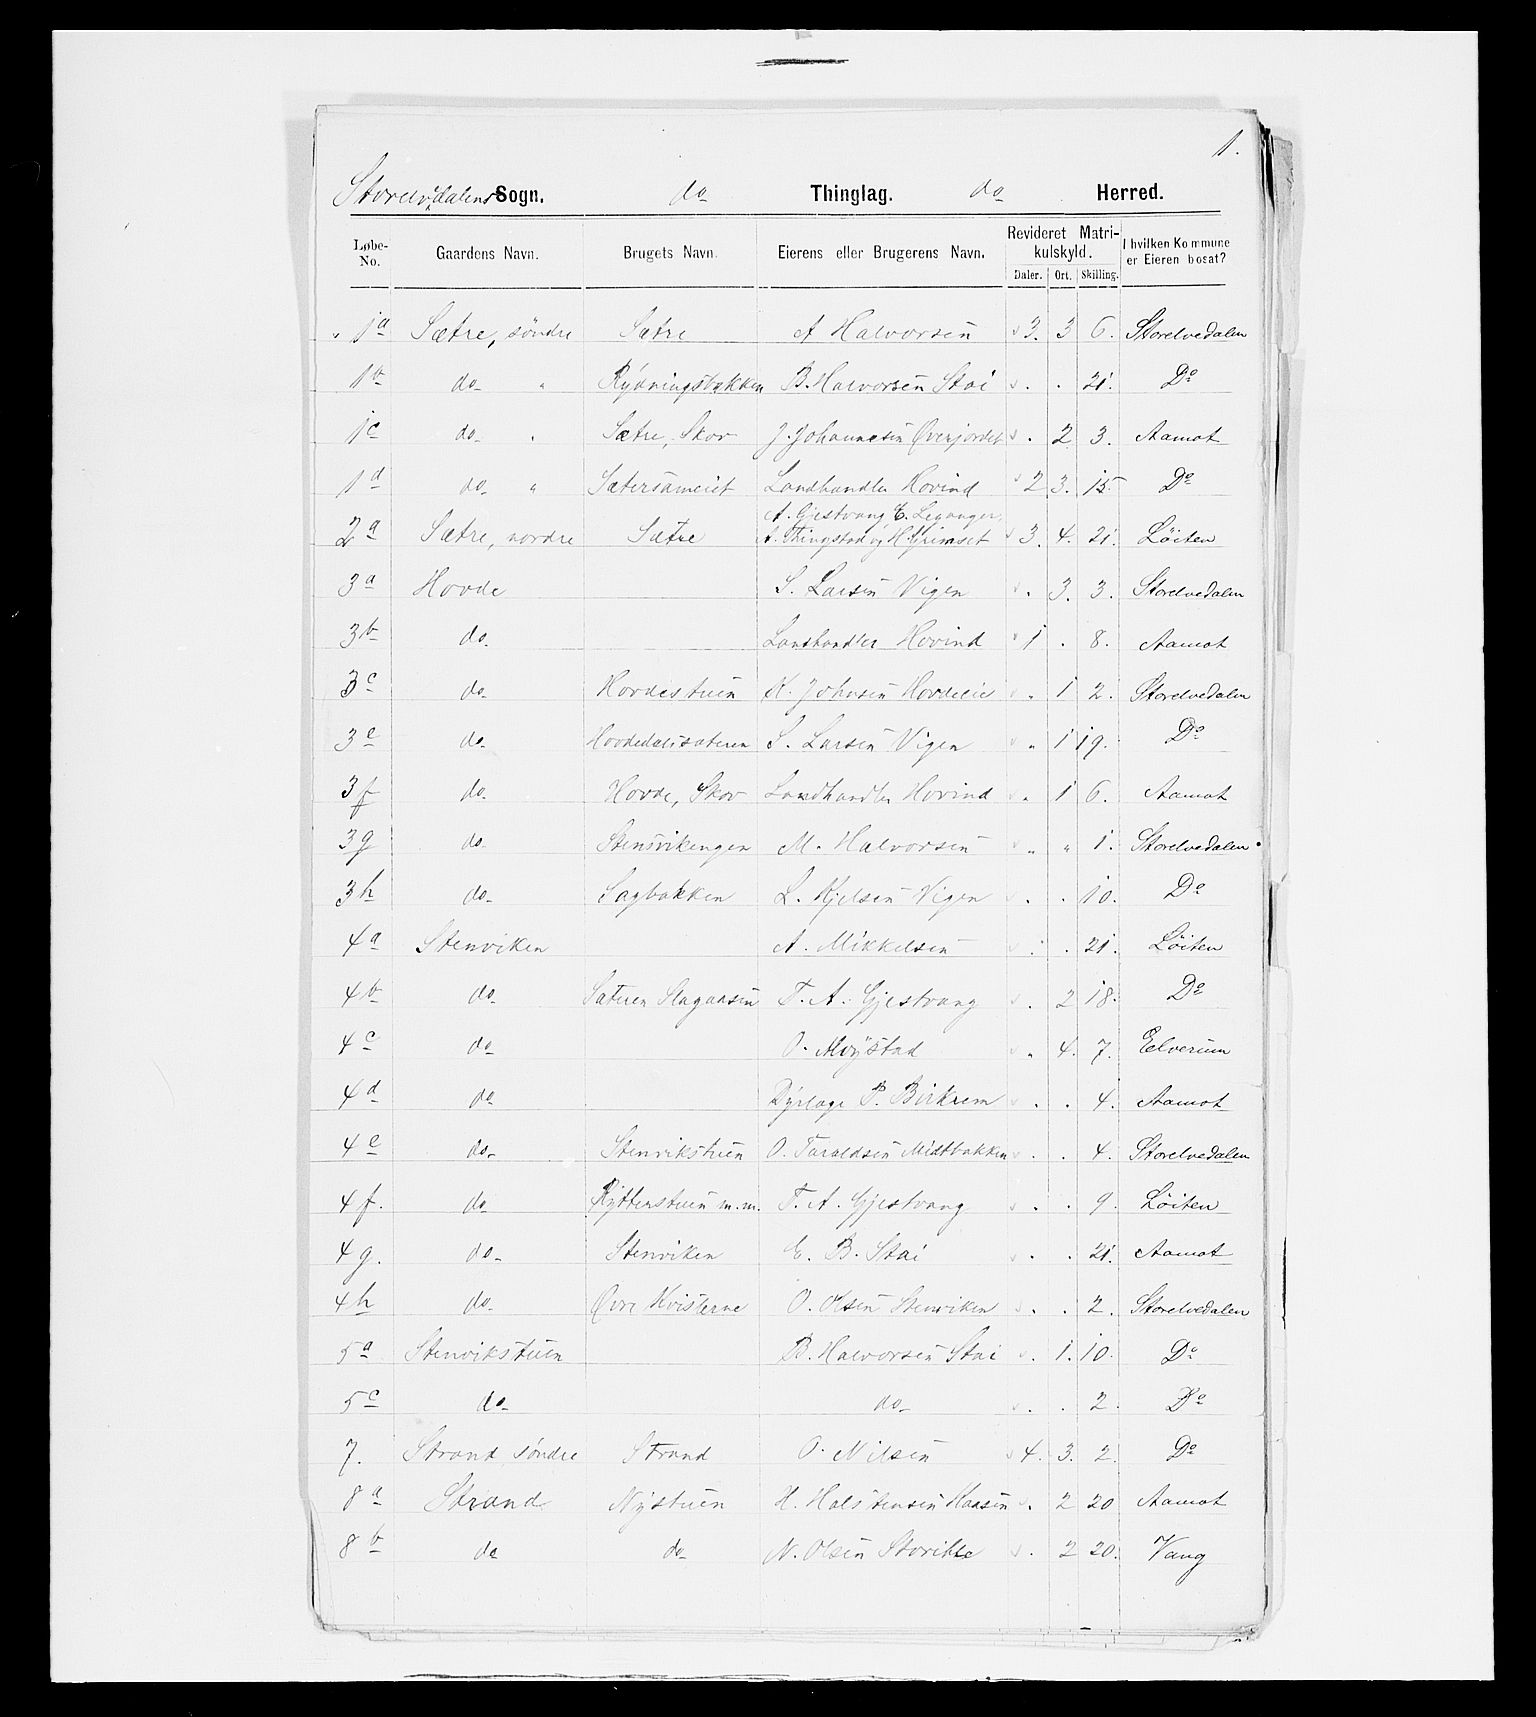 1.
Storelvdalens Sogn. do Thinglag. do Herred.
Løbe-No. Gaardens Navn. Brugets Navn. Eierens eller Brugerens Navn. Revideret Matrikulskyld. Daler. Ort. Skilling. I hvilken Kommune er Eieren bosat?
1a Sætre, söndre Sætre A Halvorsen 3. 3 6. Storelvedalen
1b do " Rydningsbakken B. Halvorsen Stai . . 21. Do
1c do " Sætre, Skov J. Johannesen Øverjordet . 2 3. Aamot
1d do " Sætersameiet Landhandler Hovind 2 3. 15 Do
2a Sætre, nordre Sætre A. Gjestvang E. Leganger, A. Thingstad og H. Grimset 3. 4. 21. Löiten
3a Hovde S. Larsen Vigen . 3. 3. Storelvedalen
3b do. Landhandler Hovind 1 . 8. Aamot
3c do Hovdestuen K. Johnsen Hovdeeie . 1 2. Storelvedalen
3e do Hovdedalssæteren S. Larsen Vigen " 1 19. Do
3f do Hovde, Skov Landhandler Hovind " 1 6. Aamot
3g do Stensvikengen M. Halvorsen " " 1. Storelvedalen
3h do Sagbakken L. Kjelsen Vigen . . 10. Do
4a Stenviken A. Mikkelsen . . 21. Löiten
4b do Sæteren Slagaasen T. A. Gjestvang . 2 18. Do
4c do O. Møystad " 4. 7. Elverum
4d do Dyrlæge P. Birkrem . . 4. Aamot
4e do Stenvikstuen O. Taraldsen Midtbakken . . 4. Storelvedalen
4f. do Rytterstuen m.m. T. A. Gjestvang . . 9. Löiten
4g. do Stenviken E. B. Stai . . 21. Aamot
4h do Øvre Kvisterne O. Olsen Stenviken . . 2. Storelvedalen
5a Stenvikstuen B. Halvorsen Stai . 1. 10. Do
5c do do . . 2. Do
7. Strand söndre Strand O. Nilsen 4. 3. 2. Do
8a Strand Nystuen H. Halstensen Haasen . 2 20 Aamot
8b do do N. Olsen . 2 20. Vang